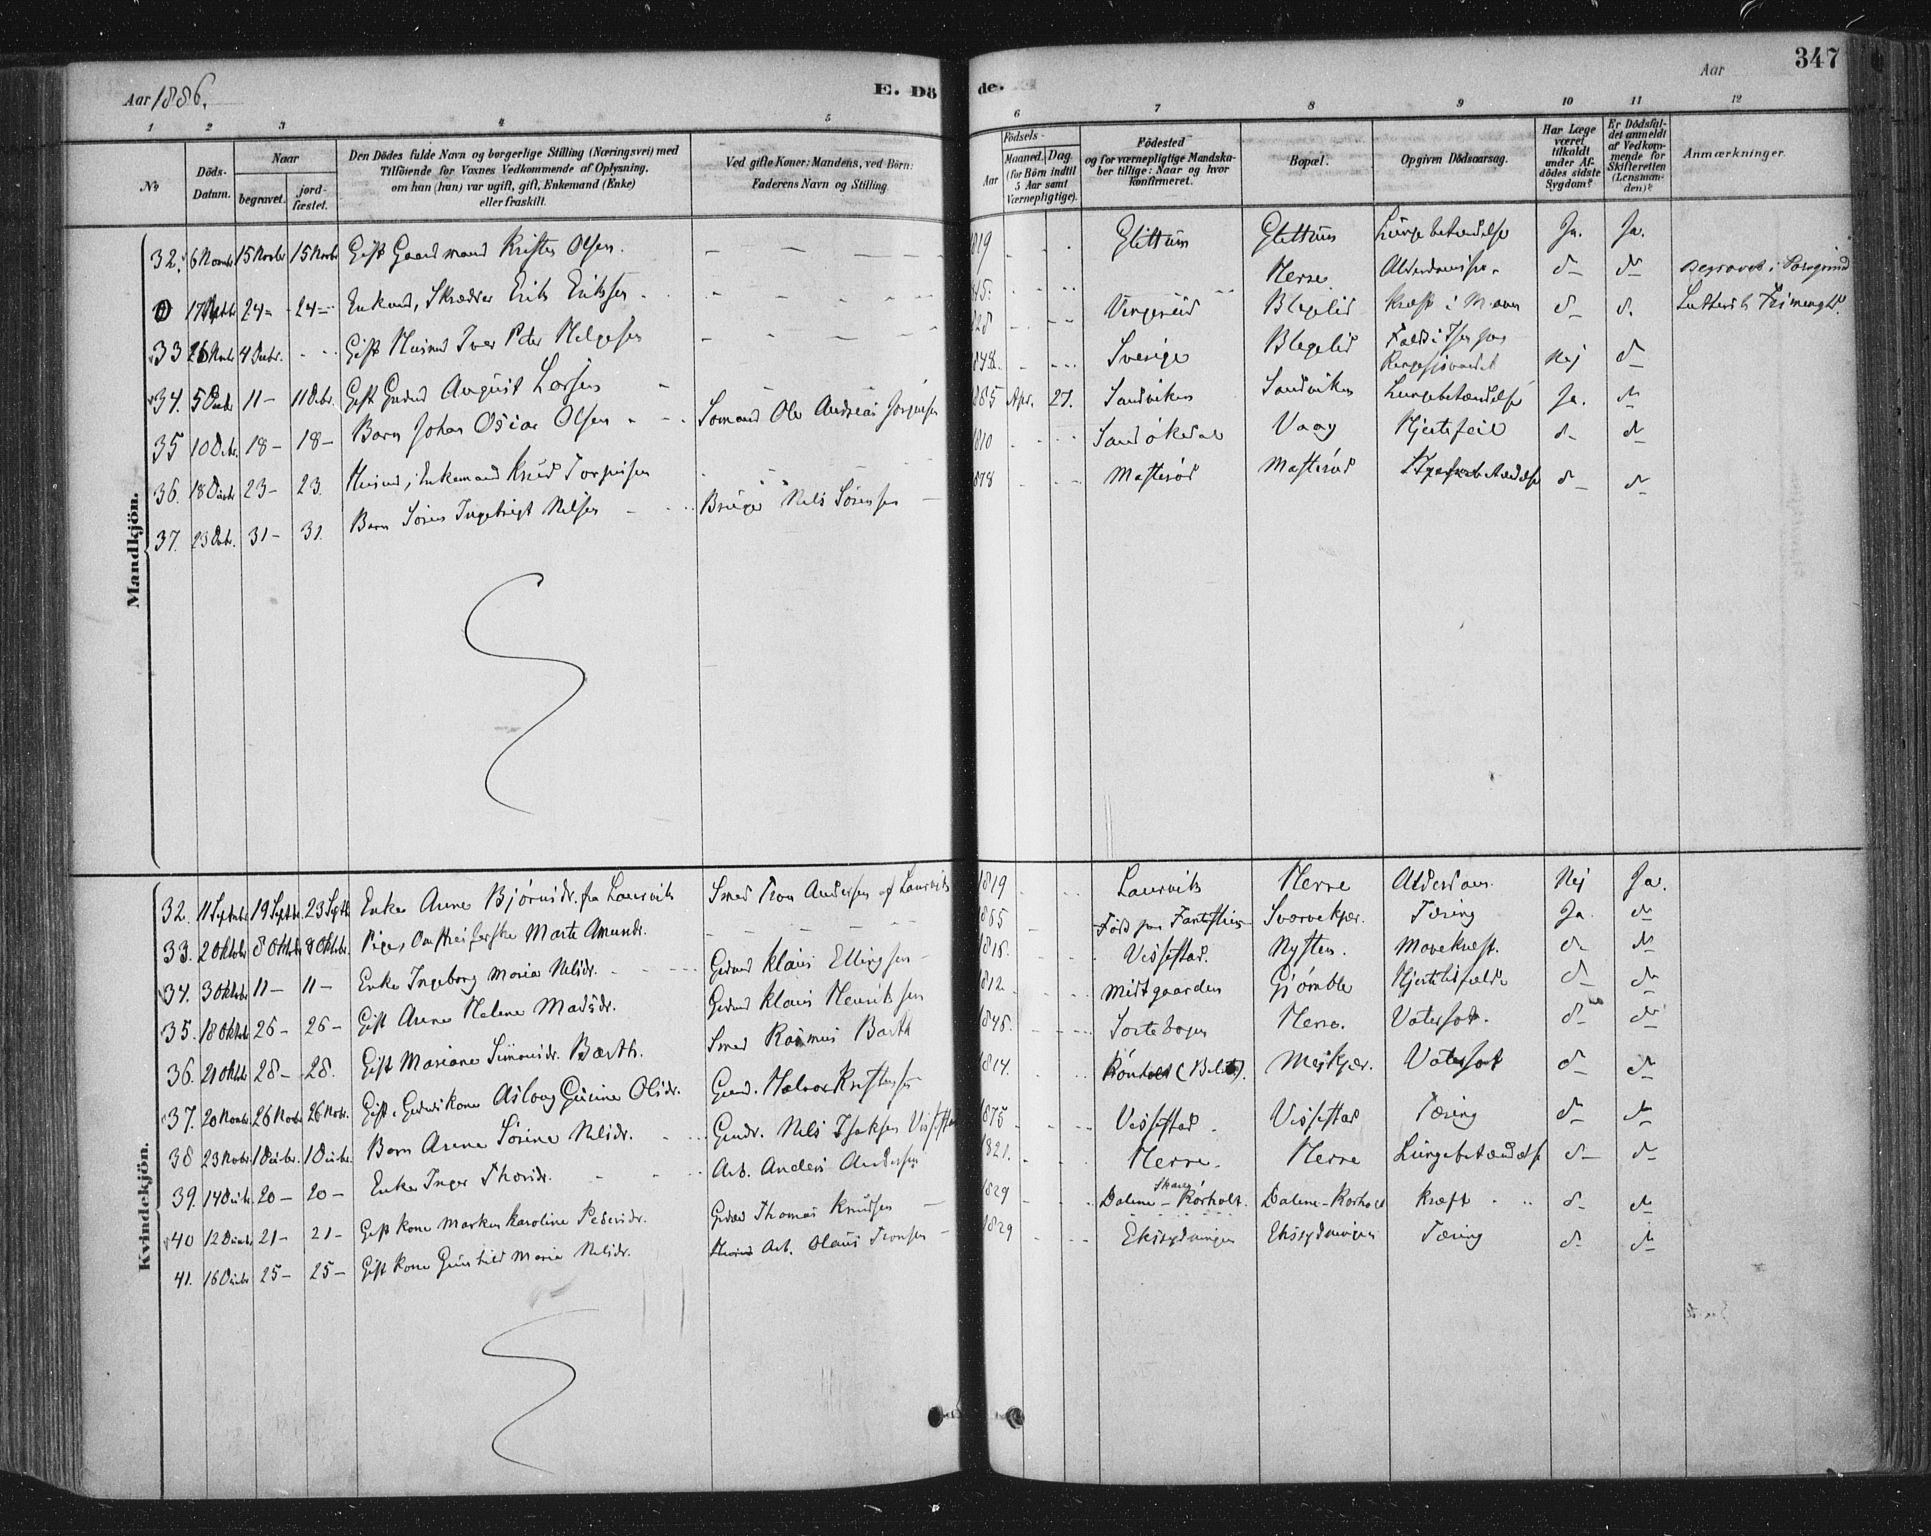 Aar 1886.
E. Döde.
Aar
347
1 2 3 4 5 6 7 8 9 10 11 12
No
Döds-Datum.
Naar begravet. jord-fæstet.
Den Dödes fulde Navn og borgerlige Stilling (Næringsvei) med Tilföiende for Voxnes Vedkommende af Oplysning, om han (hun) var ugift, gift, Enkemand (Enke) eller fraskilt.
Ved gifte Koner: Mandens, ved Börn: Faderens Navn og Stilling.
Födsels- Aar Maaned. Dag. (for Börn indtil 5 Aar samt Værnepligtige).
Födested og for værnepligtige Mandskaber tillige: Naar og hvor Konfirmeret.
Bopæl.
Opgiven Dödsaarsag.
Har Læge været tilkaldt under Afdødes sidste Sygdom?
Er Dödsfaldet anmeldt af Vedkommende for Skifteretten (Lensmanden)?
Anmærkninger.
Mandkjön.
32. 6 Novbr 15 Novbr 15 Novbr Gift Gaardmand Krister Olsen. 1819 Glittum Glittum Lungebetændelse Ja. Ja.
0 17 24 24 Enkemd, Skrædder Erik Eriksen 45 Herre Alderdomssv. d d Begravet i Porsgrund
33 26 Novbr 4 Decbr. Gift Husmd Iver Peder Helgesen 28 Blegelid Kræft i Maven d d.
34. 5 Decbr 11 11 Decbr. Gift Gaardmd August Larsen 1848 Sverige Blegelid Nej d
35 10 Decbr. 18 18 Barn Johan Oscar Olsen Sømand Ole Andreas Jørgensen 1885 Apr. 27. Sandviken Sandviken Lungebetændelse Ja. d
36. 18 Decbr 23 23. Husmd, Enkemand Knud Torgersen 1810 Sandøkedal Vaag Hjertefeil d d
37. 23 Decbr. 31 31. Barn Søren Ingebrigt Nilsen Bruger Nils Sørensen 1878 Masterød Masterød d d
Kvindekjön.
32. 11 Septbr 19 Septbr. 23 Septbr Enke Anne Bjørnsdr. fra Laurvik Smed Tron Andersen af Laurvik 1819 Laurvik Herre Alderdom Nej Ja.
33. 2 Oktobr 8 Oktobr 8 Oktobr. Pige, Marte Amundr. 1865 Svarvekjær. Tæring Ja. d
34. 3 Oktobr 11 11 Enke Ingeborg Maria Nilsdr. Grdmd Klaus Ellingsen 1815. Vissestad. Nysten. Mavekræft. d d
35. 18 Oktbr 26 26 Gift Anne Helene Madsdr. Grdmd Klaus Henriksen 1812 Midtgaarden Gjømble d d
36. 21 Oktbr 28 28. Gift Mariane Simonsdr. Barth. Smed Rasmus Barth 1845. Herre. Vatersot. d d
37. 20 Novbr 26 Novbr 26 Novbr. Gift Grdmdkone Asloug Gurine Olsdr. Grmd. Halvor Kristensen 1814. Rønholt Meykjær. Vatersot d d
38 23 Novbr. 1 Decbr. 1 Decbr. Barn Anne Sørine Nilsdr. Grmdr. Nils Isaksen Vissestad 1875 Vissestad Vissestad Tæring d d
39. 14 Decbr. 20 20 Enke Inger Thorsdr. Arb. Anders Andersen 1821. Herre. Herre Lungebetændelse d d
40 12 Decbr 21 21 Gift Kone Maren Karoline Pedersdr. Grdmd Thomas Knudsen 1829 Dalene - Rørholt. Dalene - Rorholt Kræft d d
41. 16 Decbr 25 25 Gift Kone Gunhild Maria Nilsdr. Arb. Olaus Tronsen 1829 Tæring d d